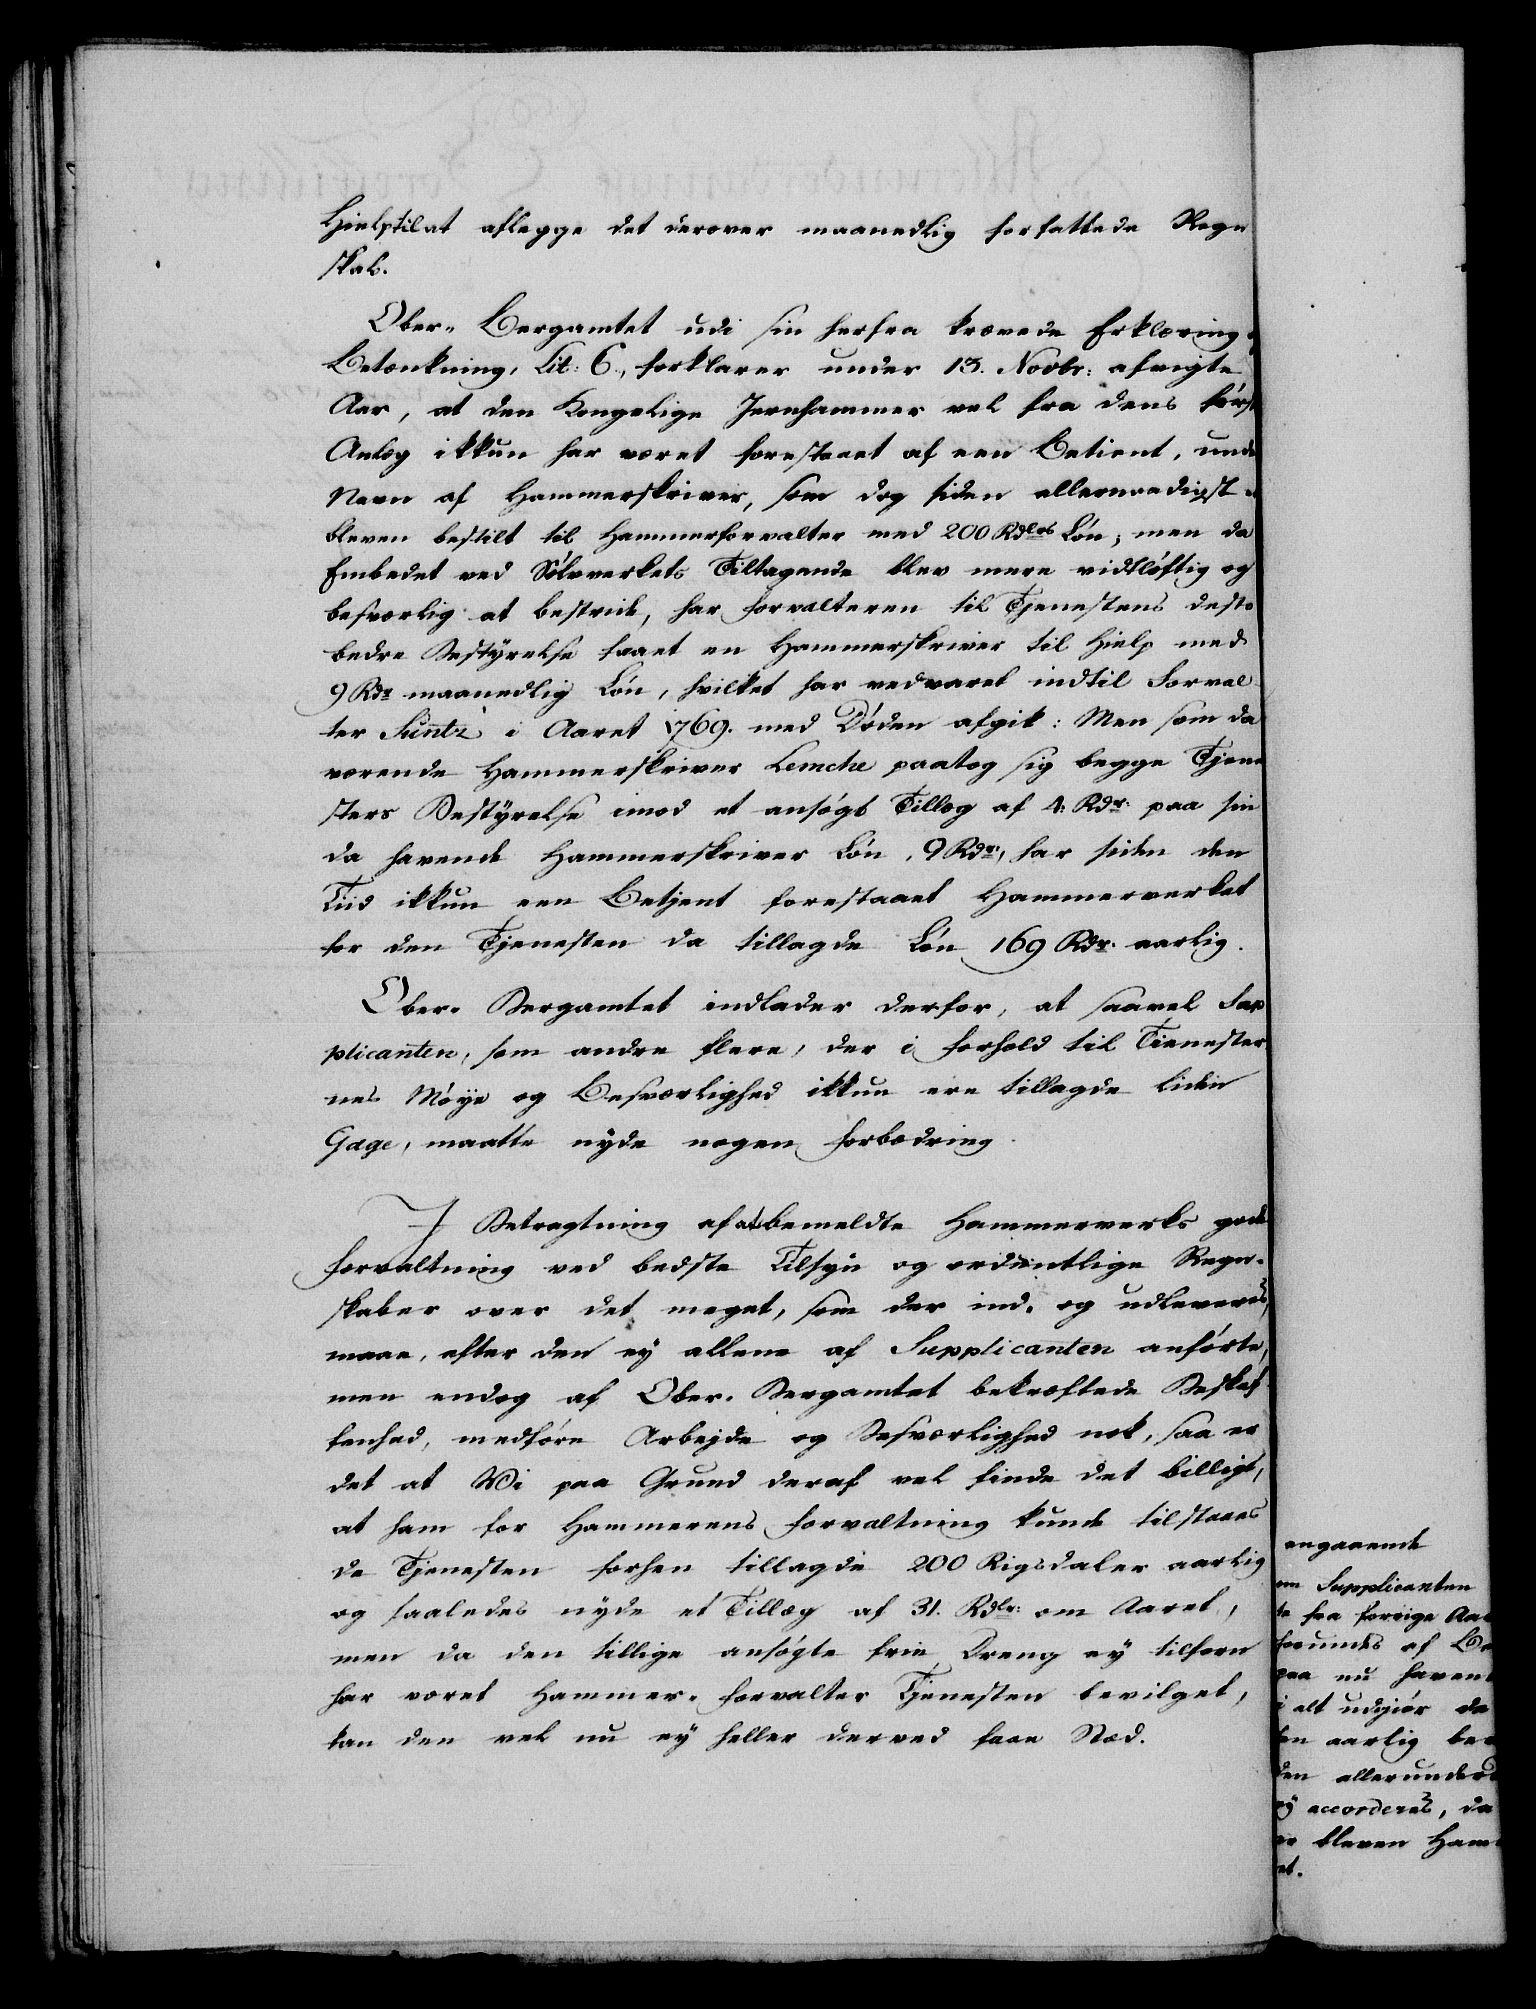 Hielp til at aflegge det derover maanedlig forfattede Regn
skab.
Ober- Bergamtet udi sin herfra krævede Erklæring
Betænkning, Lit: C., forklarer under 13. Novbr: afvigte
Aar, at den Kongelige Jernhammer vel fra dens först
Anlæg ikkun har været forestaaet af een Betient, unde
Navn af Hammerskriver, som dog siden allernaadigst
bleven bestilt til Hammerforvalter med 200 Rdlrs Lön; men da
Embedet ved Sölvverkets Tiltagende blev mere vidtlöftig og
besværlig at bestride, har Forvalteren til Tjenestens desto
bedre Bestÿrelse faaet en Hammerskriver til Hielp med
9 Rdr maanedlig Lön, hvilket har vedvaret indtil Forval
ter Suntz i Aaret 1769. med Döden afgik: Men som da
værende Hammerskriver Lemche paatog sig begge Tjene
sters Bestÿrelse imod et ansögt Tillæg af 4: Rdr: paa sin
da havende Hammerskriver Lön, 9 Rdr:, har siden den
Tiid ikkun een Betjent forestaaet Hammerverket
for den Tjenesten da tillagde Lön 169 Rdr. aarlig.
Ober- Bergamtet indlader derfor, at saavel Sup
plicanten, som andre flere, der i Forhold til Tienester
nes Möÿe og Besværlighed ikkun ere tillagde liden
Gage, maatte nyde nogen Forbedring.
I Betragtning af at bemeldte Hammerverks gode
Forvaltning ved bedste Tilsyn og ordentlige Regn-
skaber over det meget, som der ind- og udleveres,
maae, efter den ey allene af Supplicanten anförte,
men endog af Ober- Bergamtet bekræftede Beskaf
fenhed, medföre Arbejde og Besværlighed nok, saa er
det at Wi paa Grund deraf vel finde det billigt,
at ham for Hammerens Forvaltning kunde tilstaaes
de Tjenesten forhen tillagde 200 Rigsdaler aarlig
og saaledes nyde et Tillæg af 31. Rdlr: om Aaret,
men da den tillige ansögte frie Dreng ey tilforn
har været Hammer- Forvalter Tjenesten bevilget,
kan den vel nu ey heller derved faae Stæd.
angaaende
Supplicanten
fra forrige Aar
af
paa nu havend
i alt udgiör de
aarlig
allerunderd
accorderes, da
bleven Ham